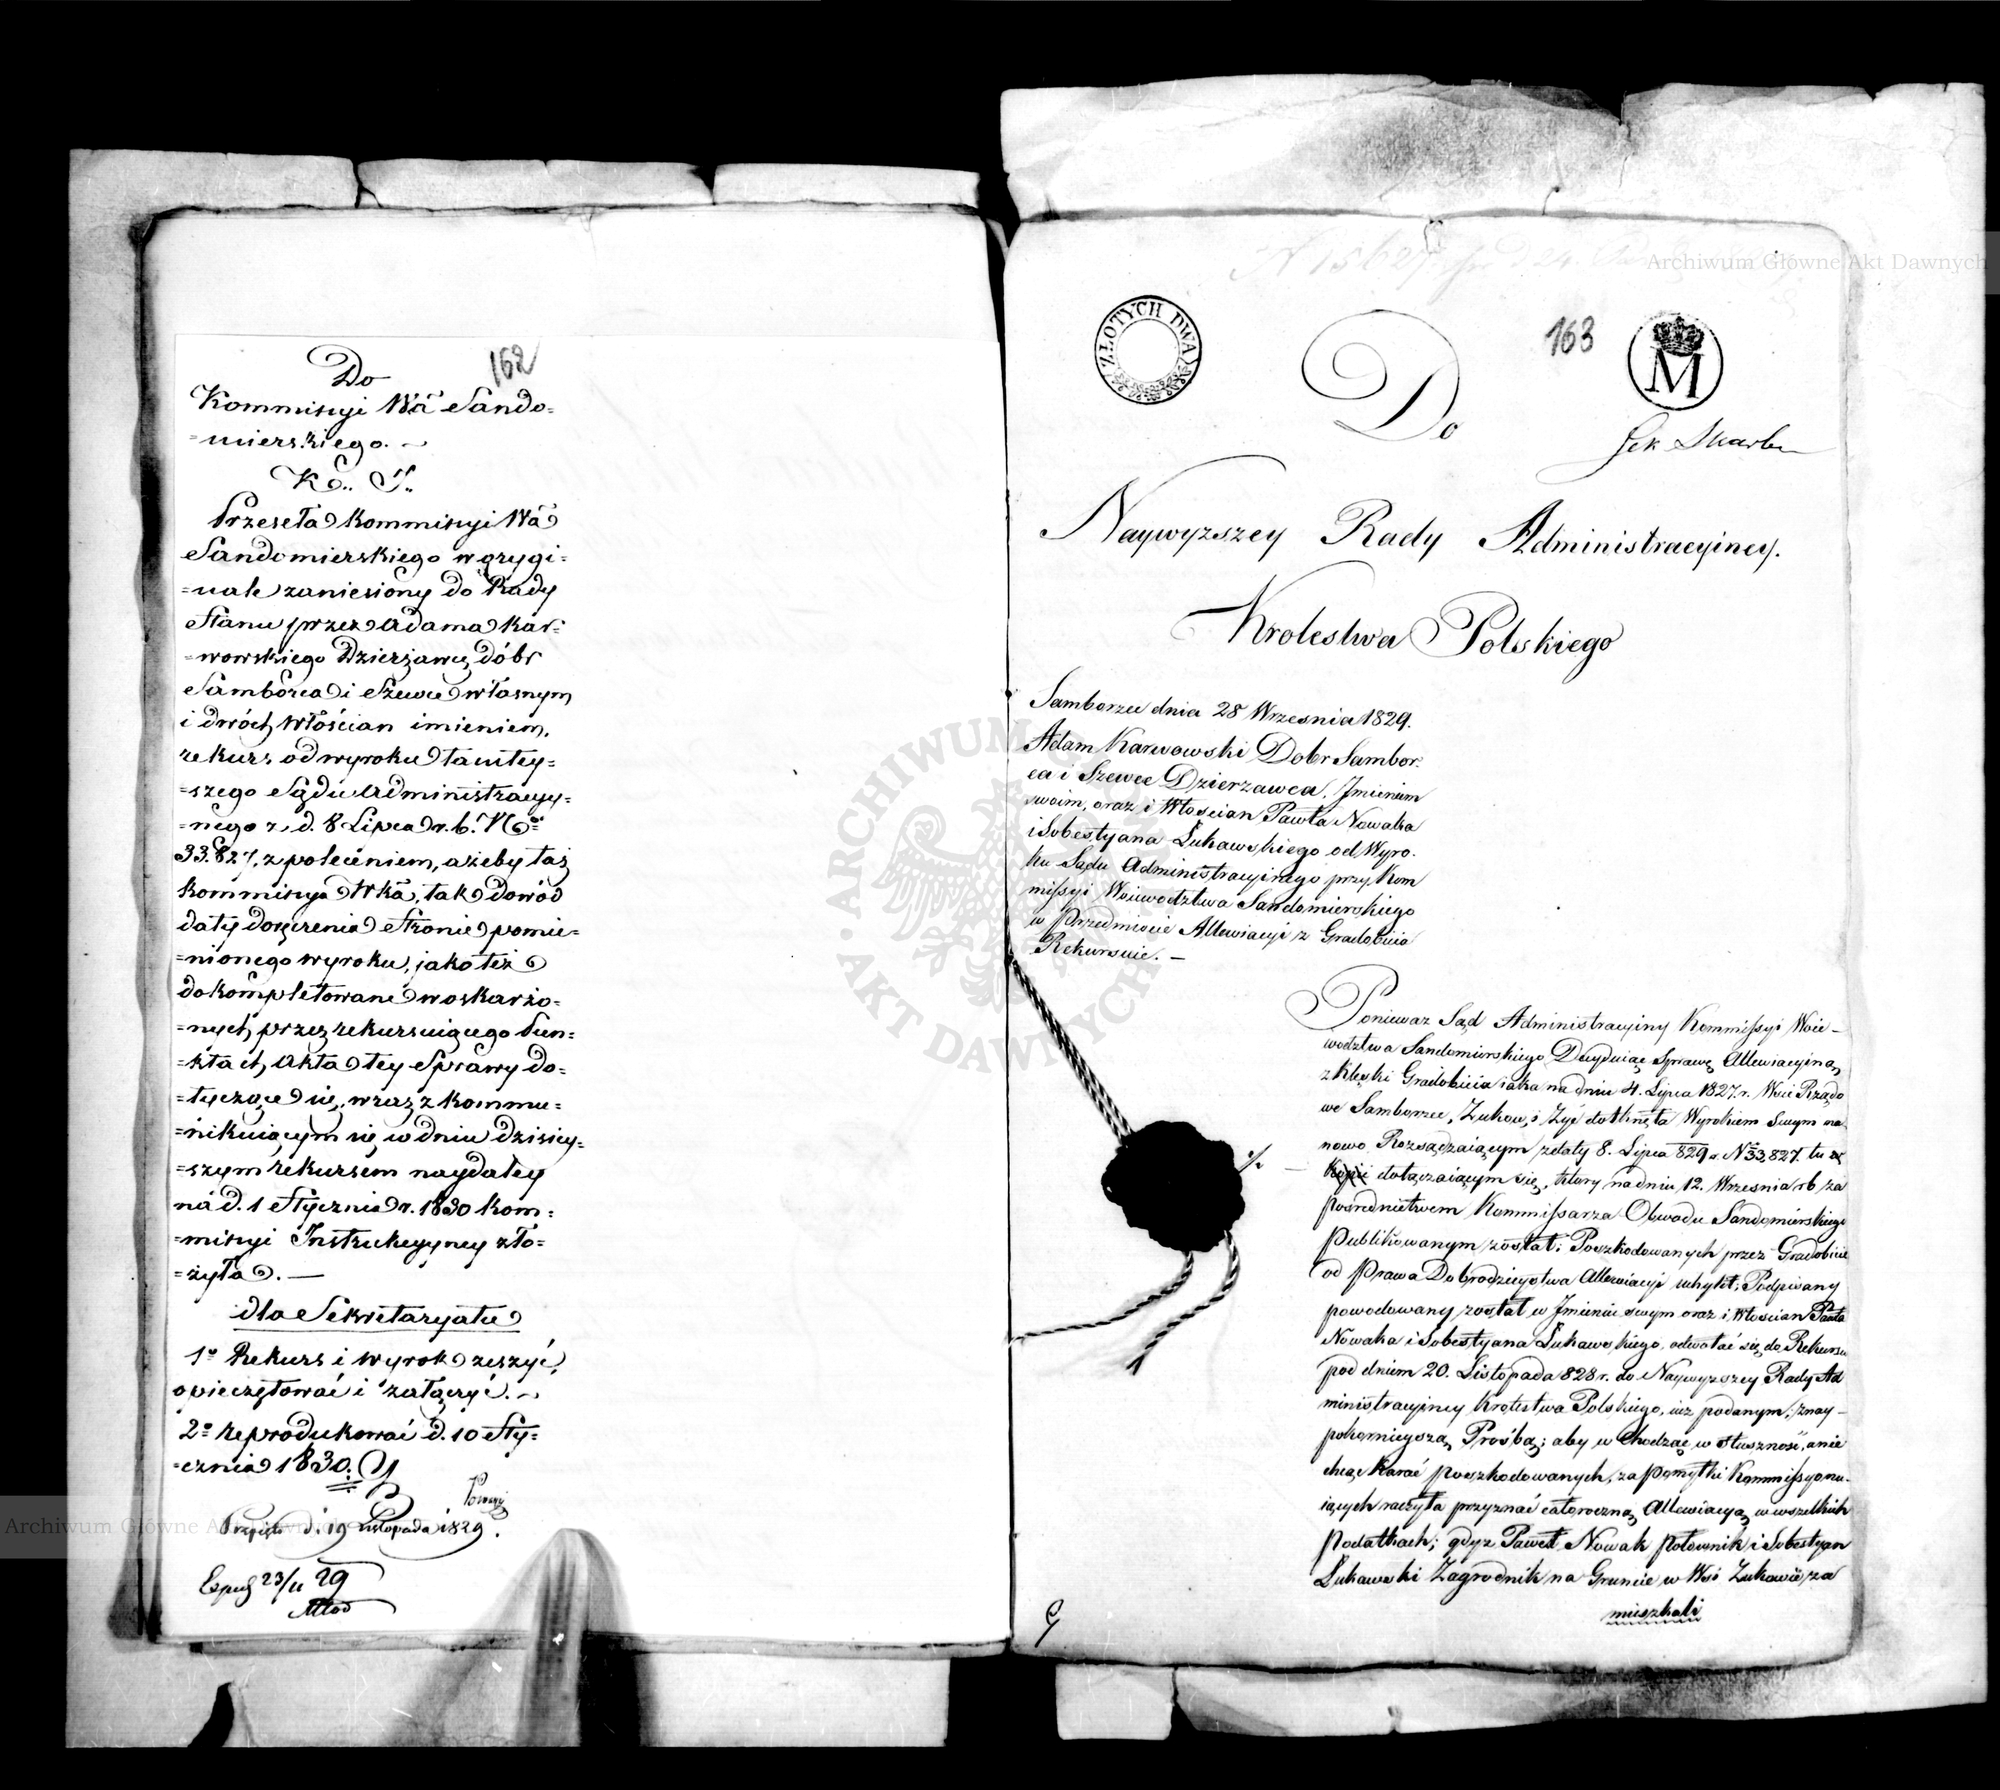 162
Do
Kommissyi Wa Sando=
=mierskiego. ~
K. S.
Przeseła Kommissyi Wa
Sandomierskiego w orygi=
=nale zaniesiony do Rady
Stanu przez Adama Kar=
=wowskiego Dzierżawcę dóbr
Samborca i Szewce własnym
i dwóch Włościan imieniem,
rekurs od wyroku tamtey=
=szego Sądu Administracyy=
=nego z d. 8 Lipca r. b. No
33.827, z poleceniem, ażeby taż
Kommissya Wka, tak dowód
daty doręczenia Stronie pomie=
=nionego wyroku, jako też
dokompletowane w oskarżo=
=nych przez rekursuiącego Pun=
=ktach Akta tey Sprawy do=
=tyczące się, wraz z kommu=
=nikuiącym się w dniu dzisiey=
=szym rekursem naydaley
na d. 1 Stycznia r. 1830 Kom=
=missyi Instrukcyyney zło=
=żyła. —
dla Sekretaryatu
1o Rekurs i wyrok zeszyć,
opieczętować i załączyć. ~
2o reprodukować d. 10 Sty=
=cznia 1830.
d. 19 Listopada 1829.
Exped 23/11 29
N 15627
ZŁOTYCH DWA
163
M
Do
Sek Skarbu
Naywyzszey Rady Administracyiney.
Krolestwa Polskiego
Samborzec dnia 28 Wrzesnia 1829.
Adam Karwowski Dobr Sambor=
ca i Szewce Dzierzawca, Jmieniem
swoim, oraz i Włoscian Pawła Nowaka
i Sobestyana Łukawskiego od Wyro-
ku Sądu Administracyinego przy Kom
missyi Woiewodztwa Sandomierskiego
w Przedmiocie Allewiacyi z Gradobicia
Rekursuie. —
Poniewaz Sąd Administracyiny Kommissyi Woie-
wodztwa Sandomierskiego Decyduiąc Sprawę Allewiacyiną
z klęski Gradobicia iaka na dniu 4. Lipca 1827. r. Wsie Rządo
we Samborzec, Zukow, i Zyć dotknęła Wyrokiem Swym na-
nowo Rozsądzaiącym z daty 8. Lipca 829 r. N 33,827. tu w
Kopii dołączaiącym się, ktory na dniu 12. Wrzesnia rb za
posrednictwem Kommissarza Obwodu Sandomierskiego
publikowanym został; Poszkodowanych przez Gradobicie
od Prawa Dobrodzieystwa Allewiacyi uchylił; Podpisany
powodowany został w Jmieniu swym oraz i Włoscian Pawła
Nowaka i Sobestyana Łukawskiego, odwołać się do Rekursu
pod dniem 20. Listopada 828 r. do Naywyzszey Rady Ad
ministracyiney Krolestwa Polskiego, iuz podanym, z nay-
pokornieyszą Prośbą; aby w chodząc w słuszność, a nie
chcąc Karać poszkodowanych, za pomyłki Kommissyonu-
iących raczyła przyznać całoroczną Allewiacyą w wszelkich
Podatkach; gdyz Paweł Nowak połownik i Sobestyan
Łukawski Zagrodnik na Gruncie w Wsi Zukowie za
mieszkali
Archiwum Główne Akt Dawnych
Archiwum Główne Akt Dawnych
ARCHIWUM GŁÓWNE AKT DAWNYCH